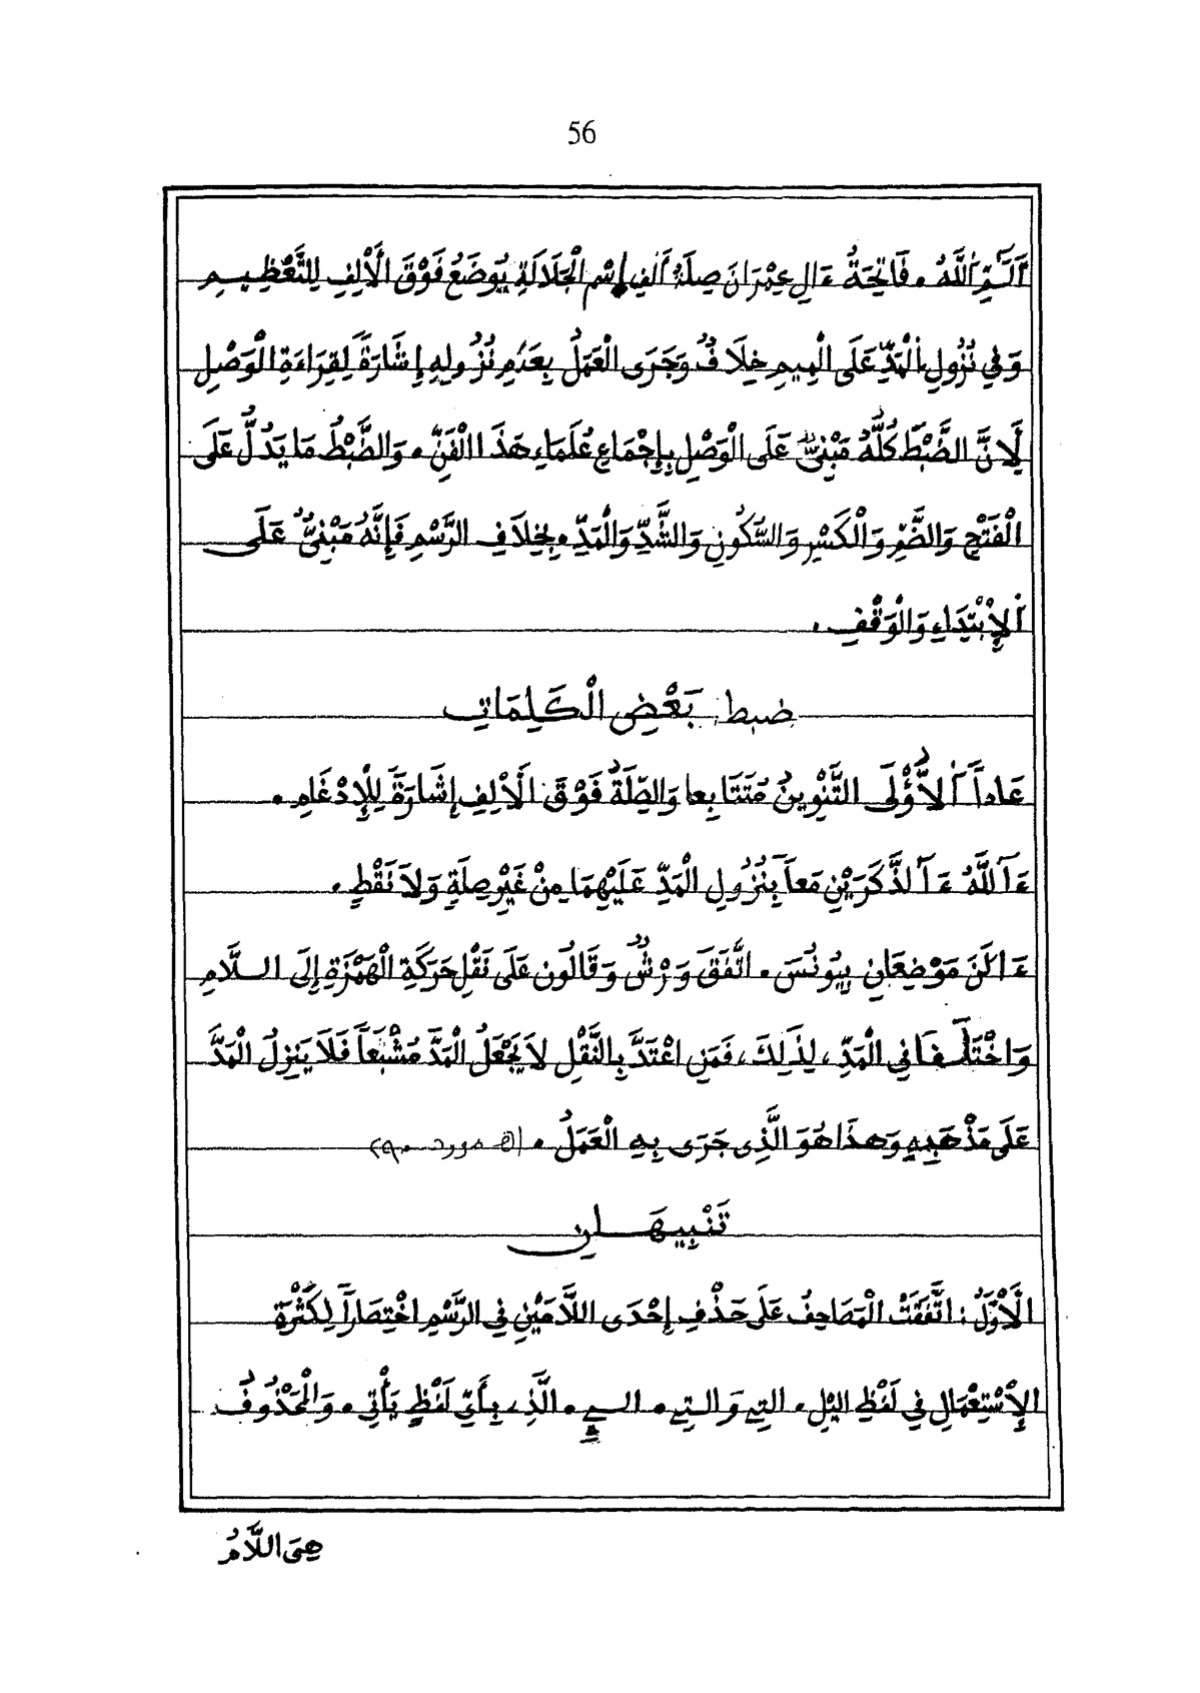 56
أَلَٓمِّٓ أَللَّهُ . فَاتِحَةُ ءَالِ عِمْرَانَ صِلَةُ أَلِفِ إِسْمِ الْجَلَالَةِ يُوضَعُ فَوْقَ الْأَلِفِ لِلتَّعْظِيمِ
وَفِي نُزُولِ الْمَدِّ عَلَى الْمِيمِ خِلَافٌ وَجَرَى الْعَمَلُ بِعَدَمِ نُزُولِهِ إِشَارَةً لِقِرَاءَةِ الْوَصْلِ
لِأَنَّ الضَّبْطَ كُلَّهُ مَبْنِيٌّ عَلَى الْوَصْلِ بِإِجْمَاعِ عُلَمَاءِ هَذَا الْفَنِّ . وَالضَّبْطُ مَا يَدُلُّ عَلَى
الْفَتْحِ وَالضَّمِّ وَالْكَسْرِ وَالسُّكُونِ وَالشَّدِّ وَالْمَدِّ . بِخِلَافِ الرَّسْمِ فَإِنَّهُ مَبْنِيٌّ عَلَى
الْإِبْتِدَاءِ وَالْوَقْفِ .
ضبط بَعْضِ الْكَلِمَاتِ
عَاداً أَلاُّوْلَى التَّنْوِينُ مُتَتَابِعا وَالصِّلَةُ فَوْقَ الْأَلِفِ إِشَارَةً لِلْإِدْغَامِ .
ءَآللَّهُ ءَآلذَّكَرَيْنِ مَعاً بِنُزُولِ الْمَدِّ عَلَيْهِمَا مِنْ غَيْرِ صِلَةٍ وَلَا نَقْطٍ .
ءَالَنَ مَوْضِعَانِ بِيُونُسَ . اتَّفَقَ وَرْشٌ وَقَالُون عَلَى نَقْلِ حَرَكَةِ الْهَمْزَةِ إِلَى اللَّامِ
وَاخْتَلَفَا فِي الْمَدِّ ، لِذَلِكَ ، فَمَنِ اعْتَدَّ بِالنَّقْلِ لَا يَجْعَلُ الْمَدَّ مُشْبَعاً فَلَا يَنْزِلُ الْمَدُّ
عَلَى مَذْهَبِهِ وَهَذَا هُوَ الَّذِى جَرَى بِهِ الْعَمَلُ . (اﻫ مورد ٩٠)
تَنْبِيهَانِ
الْأَوَّلُ : اتَّفَقَتْ الْمَصَاحِفُ عَلَى حَذْفِ إِحْدَى اللَّامَيْنِ فِي الرَّسْمِ اخْتِصَاراً لِكَثْرَةِ
الْإِسْتِعْمَالِ فِي لَفْظِ اليْلِ . التِى وَالتِى . الى . الَّذِ ، بِأَيِّ لَفْظٍ يَأْتِى . وَالْمَحْذُوفُ
هِىَ اللَّامُ